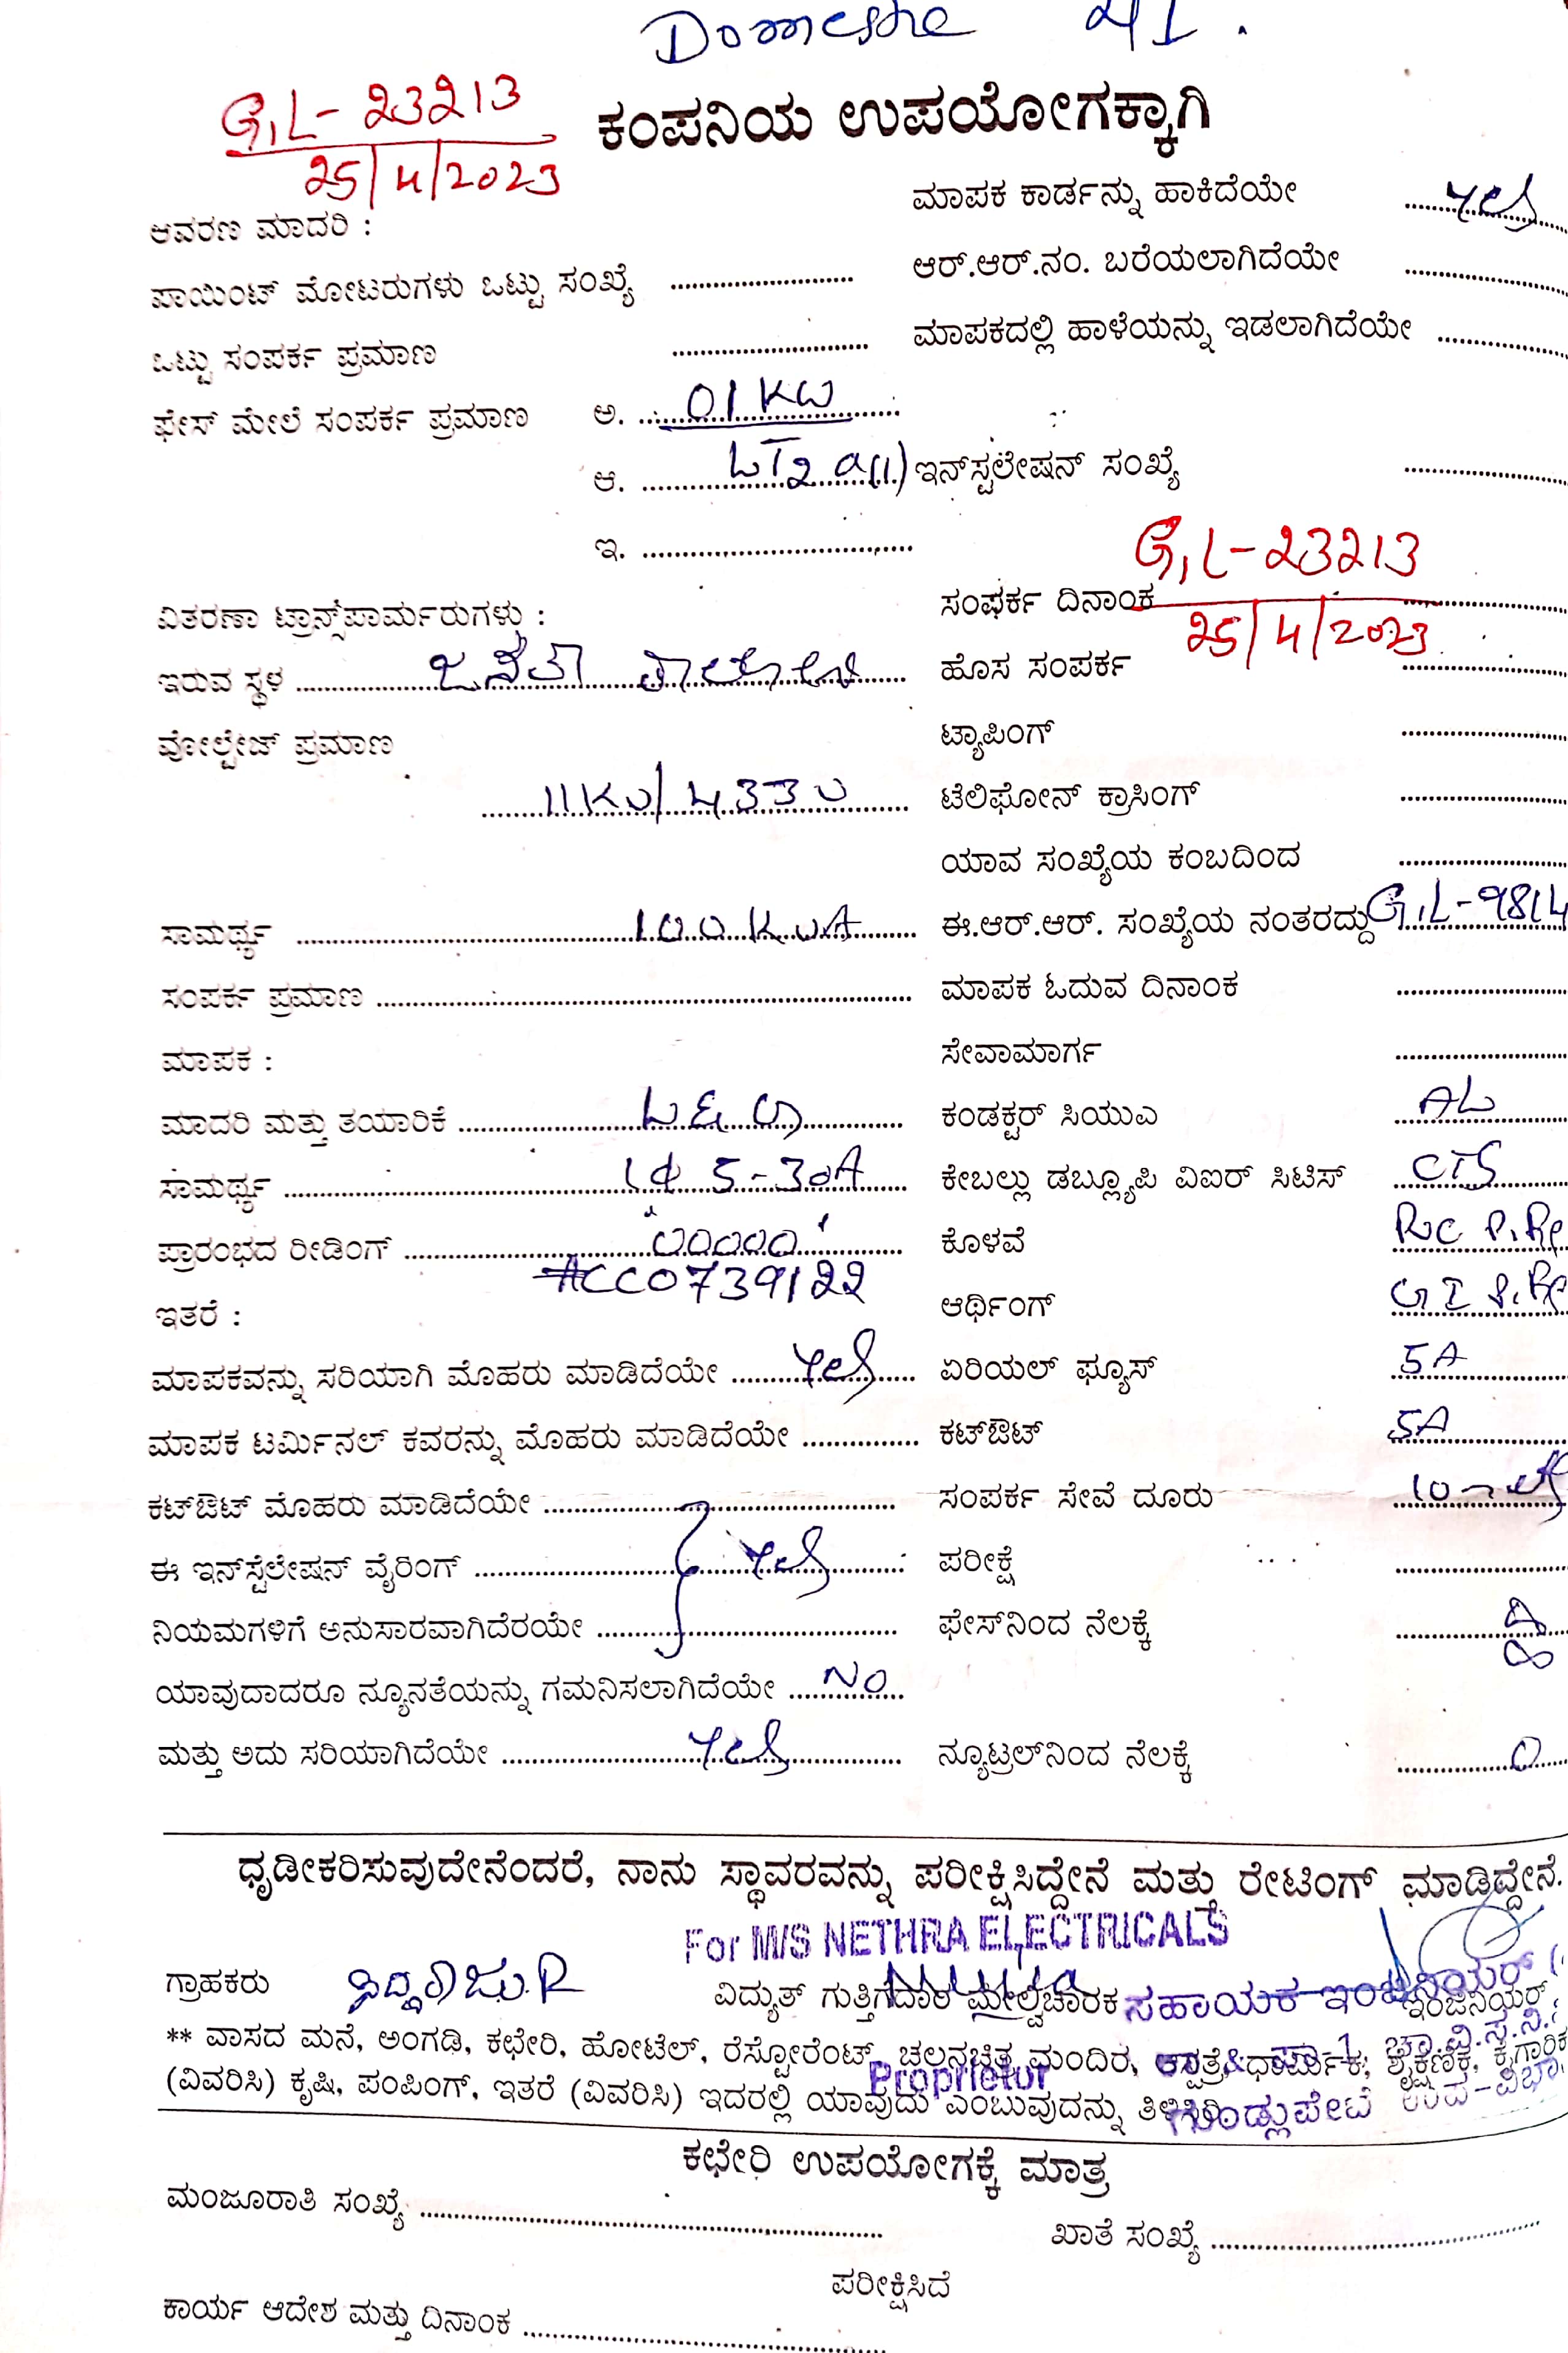 Domestic
G,L-23213
25/4/2023
ಕಂಪನಿಯ ಉಪಯೋಗಕ್ಕಾಗಿ
ಆವರಣ ಮಾದರಿ :
ಮಾಪಕ ಕಾರ್ಡನ್ನು ಹಾಕಿದೆಯೇ Yes
ಪಾಯಿಂಟ್ ಮೋಟರುಗಳು ಒಟ್ಟು ಸಂಖ್ಯೆ
ಆರ್.ಆರ್.ನಂ. ಬರೆಯಲಾಗಿದೆಯೇ
ಒಟ್ಟು ಸಂಪರ್ಕ ಪ್ರಮಾಣ
ಮಾಪಕದಲ್ಲಿ ಹಾಳೆಯನ್ನು ಇಡಲಾಗಿದೆಯೇ
ಫೇಸ್ ಮೇಲೆ ಸಂಪರ್ಕ ಪ್ರಮಾಣ ಅ. 01 KW
ಆ. LT2 a(1) ಇನ್‌ಸ್ಟಲೇಷನ್ ಸಂಖ್ಯೆ
ಇ.
G,L-23213
ವಿತರಣಾ ಟ್ರಾನ್ಸ್‌ಪಾರ್ಮರುಗಳು :
ಸಂಫರ್ಕ ದಿನಾಂಕ 25/4/2023
ಇರುವ ಸ್ಥಳ
ಹೊಸ ಸಂಪರ್ಕ
ವೋಲ್ಟೇಜ್ ಪ್ರಮಾಣ
ಟ್ಯಾಪಿಂಗ್
11KV/433V ಟೆಲಿಫೋನ್ ಕ್ರಾಸಿಂಗ್
ಯಾವ ಸಂಖ್ಯೆಯ ಕಂಬದಿಂದ
ಸಾಮರ್ಥ್ಯ 100 KVA ಈ.ಆರ್.ಆರ್. ಸಂಖ್ಯೆಯ ನಂತರದ್ದು G,L-9814
ಸಂಪರ್ಕ ಪ್ರಮಾಣ ಮಾಪಕ ಓದುವ ದಿನಾಂಕ
ಮಾಪಕ : ಸೇವಾಮಾರ್ಗ
ಮಾದರಿ ಮತ್ತು ತಯಾರಿಕೆ L&G ಕಂಡಕ್ಟರ್ ಸಿಯುಎ AL
ಸಾಮರ್ಥ್ಯ 1Φ 5-30A ಕೇಬಲ್ಲು ಡಬ್ಲ್ಯೂಪಿ ವಿಐರ್ ಸಿಟಿಸ್ CTS
ಪ್ರಾರಂಭದ ರೀಡಿಂಗ್ '00000' ಕೊಳವೆ
#CC0739122
ಇತರೆ : ಆರ್ಥಿಂಗ್ GI
ಮಾಪಕವನ್ನು ಸರಿಯಾಗಿ ಮೊಹರು ಮಾಡಿದೆಯೇ Yes ಏರಿಯಲ್ ಫ್ಯೂಸ್ 5A
ಮಾಪಕ ಟರ್ಮಿನಲ್ ಕವರನ್ನು ಮೊಹರು ಮಾಡಿದೆಯೇ ಕಟ್‌ಔಟ್ 5A
ಕಟ್‌ಔಟ್ ಮೊಹರು ಮಾಡಿದೆಯೇ ಸಂಪರ್ಕ ಸೇವೆ ದೂರು
ಈ ಇನ್‌ಸ್ಟೆಲೇಷನ್ ವೈರಿಂಗ್ Yes ಪರೀಕ್ಷೆ
ನಿಯಮಗಳಿಗೆ ಅನುಸಾರವಾಗಿದೆರಯೇ ಫೇಸ್‌ನಿಂದ ನೆಲಕ್ಕೆ
ಯಾವುದಾದರೂ ನ್ಯೂನತೆಯನ್ನು ಗಮನಿಸಲಾಗಿದೆಯೇ NO
ಮತ್ತು ಅದು ಸರಿಯಾಗಿದೆಯೇ Yes ನ್ಯೂಟ್ರಲ್‌ನಿಂದ ನೆಲಕ್ಕೆ 0
ಧೃಡೀಕರಿಸುವುದೇನೆಂದರೆ, ನಾನು ಸ್ಥಾವರವನ್ನು ಪರೀಕ್ಷಿಸಿದ್ದೇನೆ ಮತ್ತು ರೇಟಿಂಗ್ ಮಾಡಿದ್ದೇನೆ.
For M/S NETHRA ELECTRICALS
ಗ್ರಾಹಕರು ಸಿದ್ದರಾಜು.R ವಿದ್ಯುತ್ ಗುತ್ತಿಗೆದಾರ ಮೇಲ್ವಿಚಾರಕ ಸಹಾಯಕ ಇಂಜಿನಿಯರ್
ಇಂಜಿನಿಯರ್
** ವಾಸದ ಮನೆ, ಅಂಗಡಿ, ಕಛೇರಿ, ಹೋಟೆಲ್, ರೆಸ್ಟೋರೆಂಟ್, ಚಲನಚಿತ್ರ ಮಂದಿರ, ಆಸ್ಪತ್ರೆ, ಧಾರ್ಮಿಕ, ಶೈಕ್ಷಣಿಕ, ಕೈಗಾರಿಕ
ಚಾ.ವಿ.ಸ.ನಿ.
Proprietor
(ವಿವರಿಸಿ) ಕೃಷಿ, ಪಂಪಿಂಗ್, ಇತರೆ (ವಿವರಿಸಿ) ಇದರಲ್ಲಿ ಯಾವುದು ಎಂಬುವುದನ್ನು ತಿಳಿಸಿರಿ.
ಗುಂಡ್ಲುಪೇಟೆ ಉಪ-ವಿಭಾ
ಕಛೇರಿ ಉಪಯೋಗಕ್ಕೆ ಮಾತ್ರ
ಮಂಜೂರಾತಿ ಸಂಖ್ಯೆ ಖಾತೆ ಸಂಖ್ಯೆ
ಪರೀಕ್ಷಿಸಿದೆ
ಕಾರ್ಯ ಆದೇಶ ಮತ್ತು ದಿನಾಂಕ